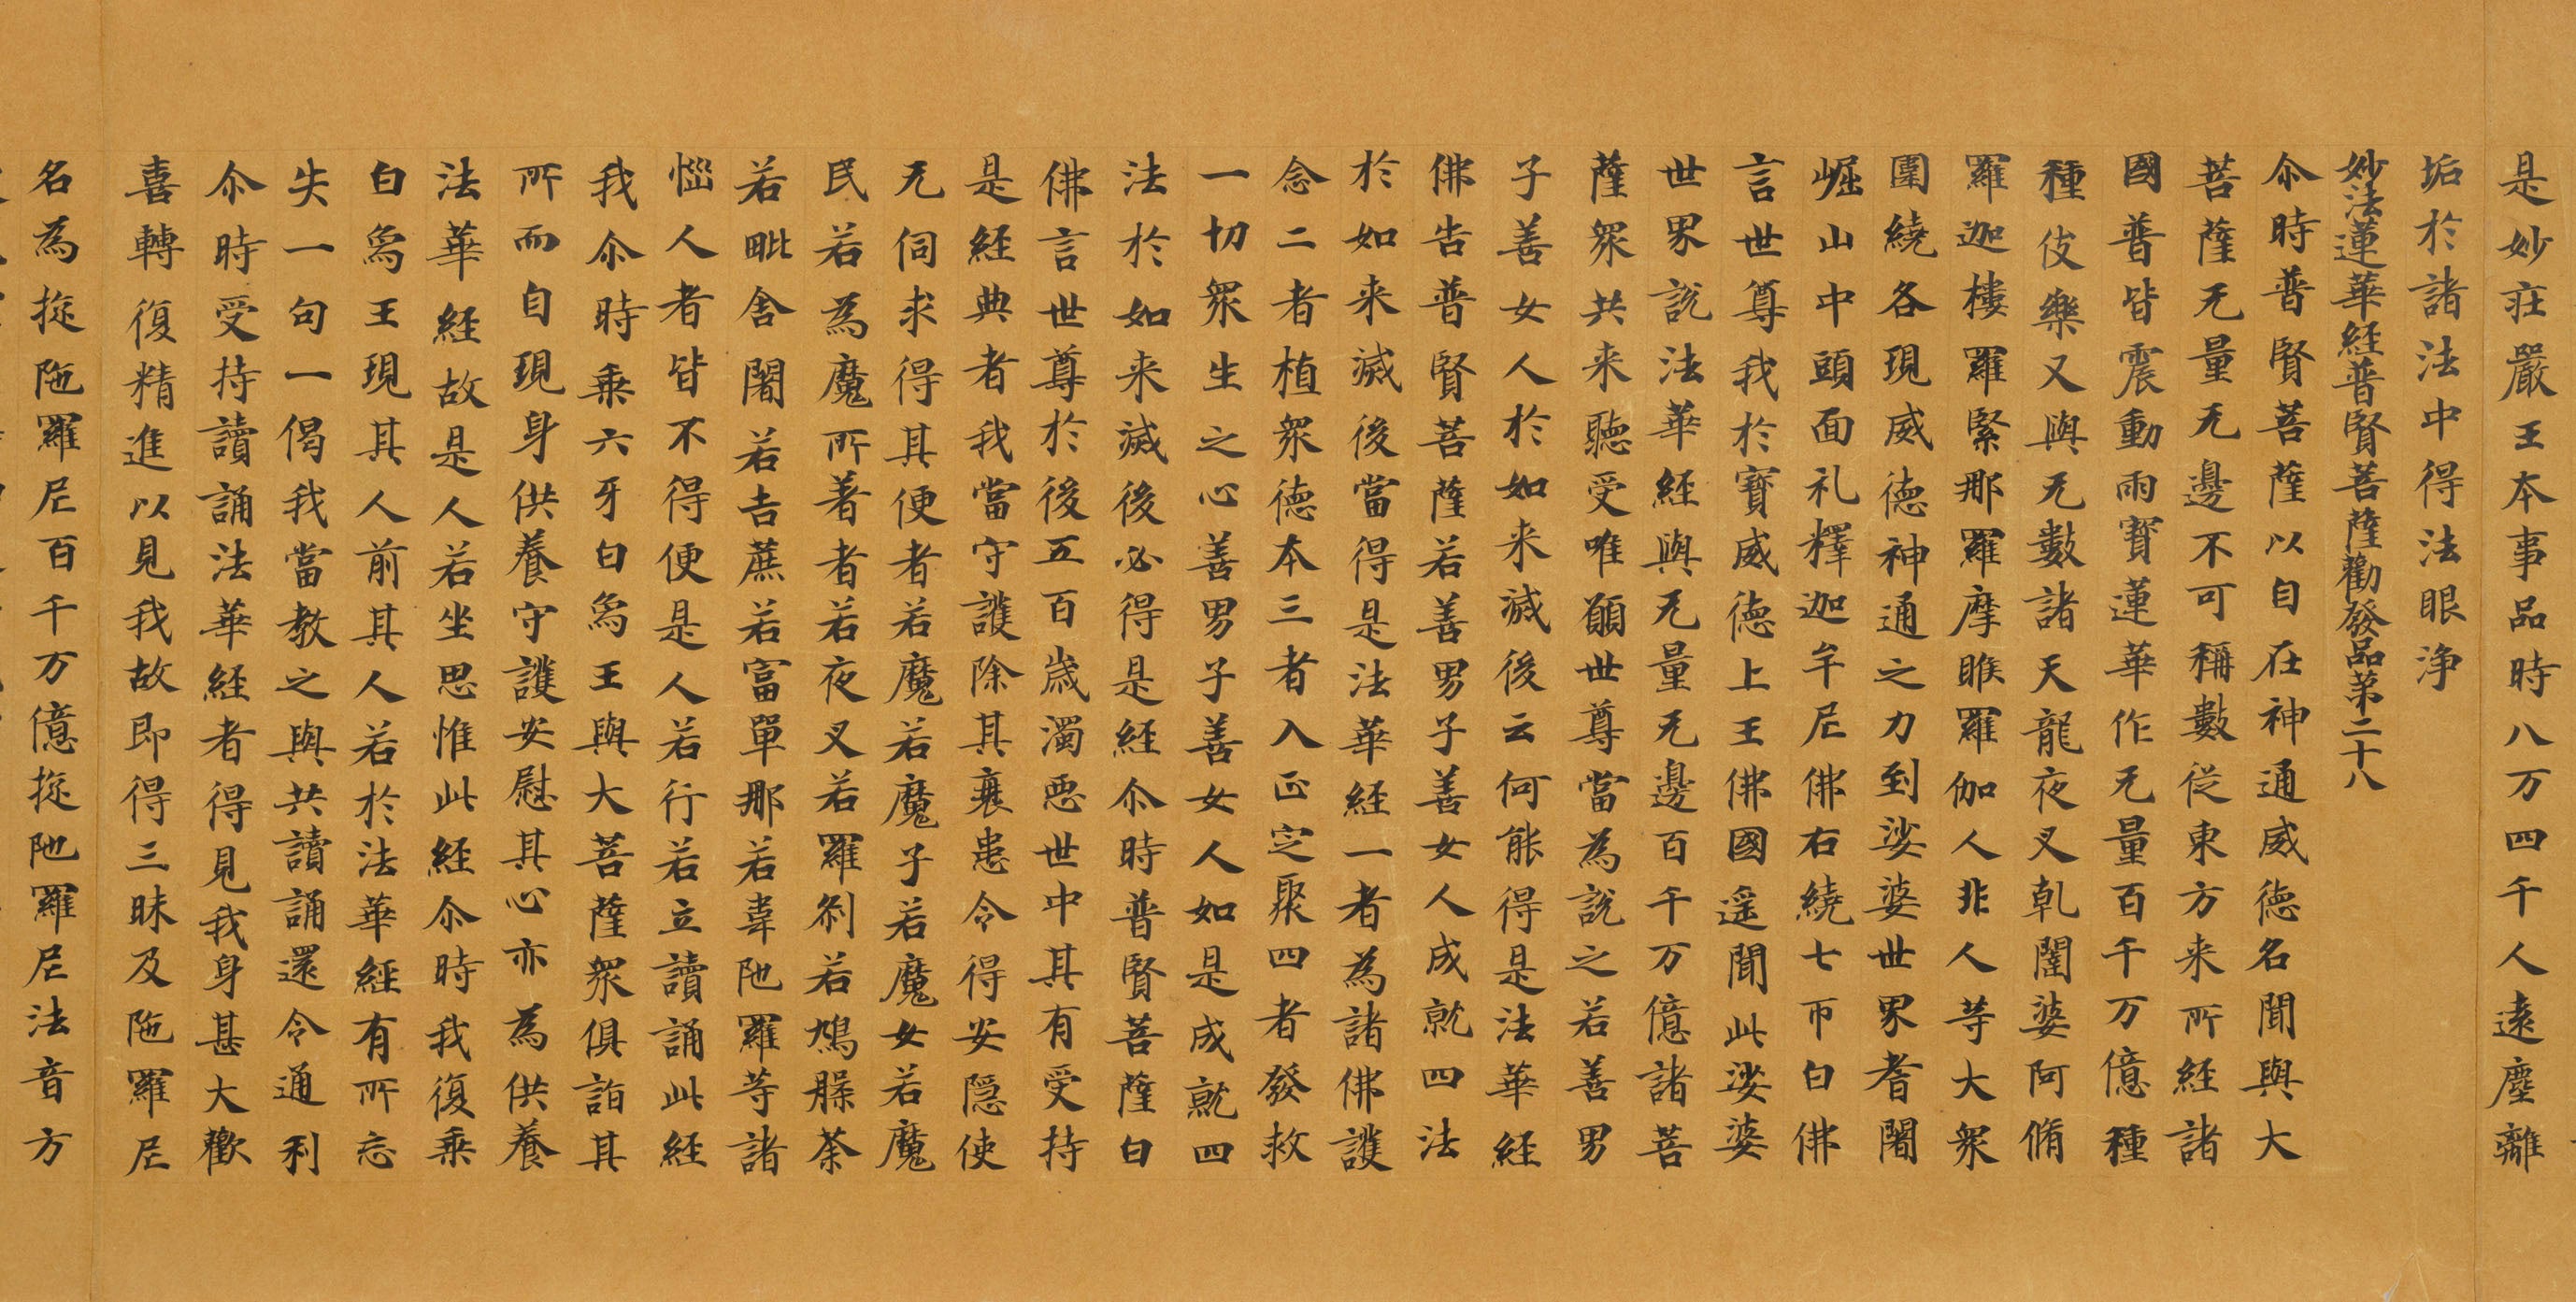 是妙莊嚴王本事品時八万四千人遠塵離
垢於諸法中得法眼淨
妙法蓮華經普賢菩薩勸發品第二十八
尒時普賢菩薩以自在神通威德名聞與大
菩薩无量无邊不可稱數從東方来所經諸
國普皆震動雨寶蓮華作无量百千万億種
種伎樂又與无數諸天龍夜叉乹闥婆阿脩
羅迦樓羅緊那羅摩睺羅伽人非人等大衆
圍繞各現威德神通之力到娑婆世界耆闍
崛山中頭面礼釋迦牟尼佛右繞七帀白佛
言世尊我於寶威德上王佛國遥聞此娑婆
世界說法華經與无量无邊百千万億諸菩
薩衆共来聽受唯願世尊當為說之若善男
子善女人於如来滅後云何能得是法華經
佛告普賢菩薩若善男子善女人成就四法
於如来滅後當得是法華經一者為諸佛護
念二者植衆德本三者入正定聚四者發救
一切衆生之心善男子善女人如是成就四
法於如来滅後必得是經尒時普賢菩薩白
佛言世尊於後五百歲濁惡世中其有受持
是經典者我當守護除其衰患令得安隱使
无伺求得其便者若魔若魔子若魔女若魔
民若為魔所著者若夜叉若羅刹若鳩槃荼
若毗舍闍若吉蔗若富單那若韋陁羅等諸
惱人者皆不得便是人若行若立讀誦此經
我尒時乗六牙白象王與大菩薩衆俱詣其
所而自現身供養守護安慰其心亦為供養
法華經故是人若坐思惟此經尒時我復乗
白象王現其人前其人若於法華經有所忘
失一句一偈我當教之與共讀誦還令通利
尒時受持讀誦法華經者得見我身甚大歡
喜轉復精進以見我故即得三昧及陁羅尼
名為旋陁羅尼百千万億旋陁羅尼法音方